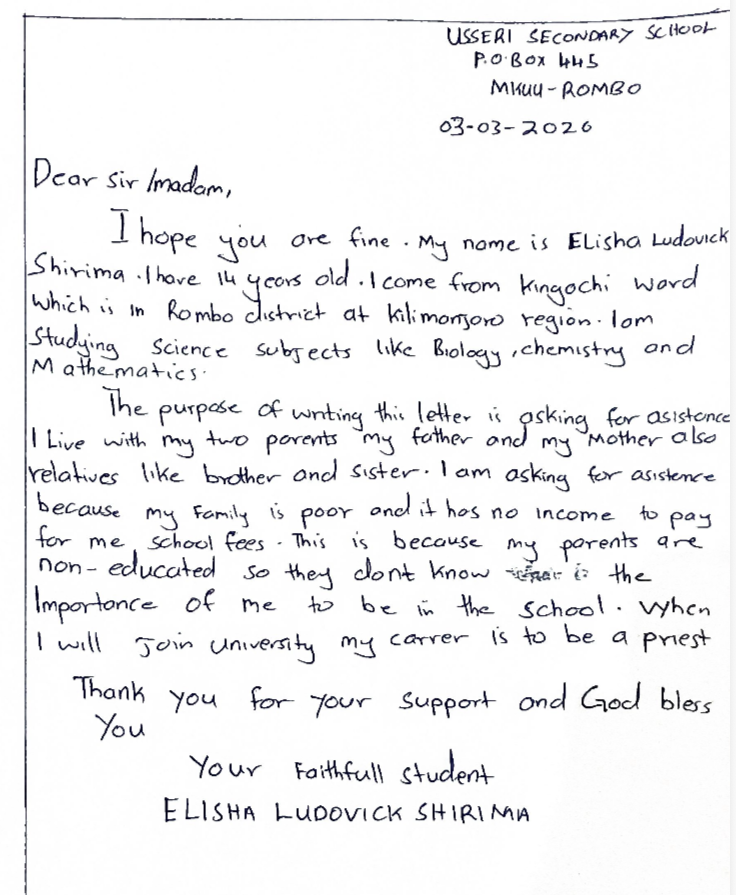 USSERI SECONDARY SCHOOL
P.O.BOX 445
MKUU-ROMBO
03-03-2026
Dear Sir/madam,
I hope you are fine. My name is Elisha Ludovick
Shirima. I have 14 years old. I come from Kingachi word
which is in Rombo district at kilimanjaro region. Iam
Studying Science subjects like Biology, chemistry and
Mathematics.
The purpose of writing this letter is asking for asistance
I Live with my two parents my father and my Mother also
relatives like brother and sister. I am asking for asistence
because my Family is poor and it has no income to pay
for me school fees. This is because my parents are
non-educated so they dont know the
Importance of me to be in the school. When
I will Join university my carrer is to be a priest
Thank you for your support and God bless
You
Your Faithfull student
ELISHA LUDOVICK SHIRIMA